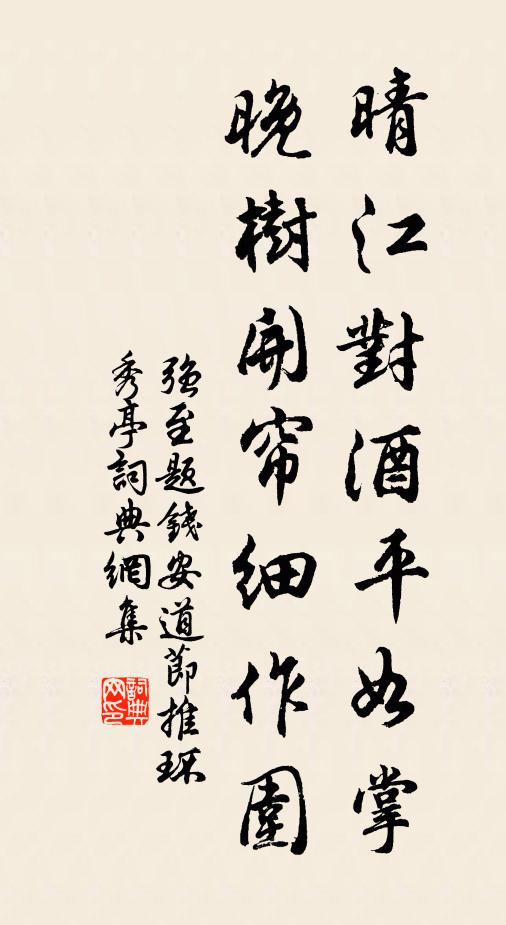 晴江對酒平如掌
晚樹開帘細作圍
強至題錢安道節推環
秀亭詞典網集
詞典
网印